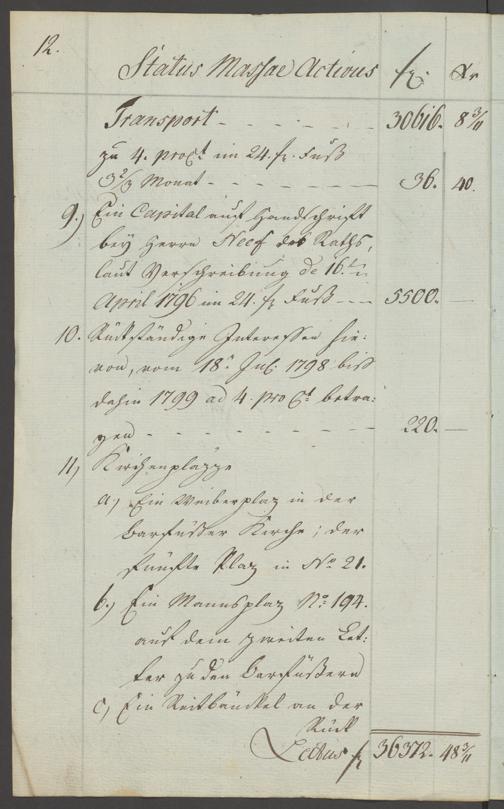 12.
Status Massae Activus fr. Xr
Transport - - - - - 30616. 8 3/11
zu 4. proCt im 24. fr. Fuß
3 2/3 Monat - - - - - - 36. 40.
9.) Ein Capital auf Handschrifft
bey Herrn Neef des Raths,
laut Verschreibung de 16.ten
April 1796 im 24. fr Fuß - - - 5500. —
10. Rückständige Interessen hie-
von, vom 18. Jul. 1798 biß
dahin 1799 ad 4. pro Ct betra-
gen - - - - - - - - 220. —
11) Kirchenpläzze
a.) Ein Weiberplaz in der
Barfüsser Kirche; der
fünfte Plaz in No 21.
b.) Ein Mannsplaz No 194.
auf dem zweiten Let-
ter zu den Barfüßern
c) Ein Reitbänckel an der
Rück
Latus fr 36372. 48 3/11